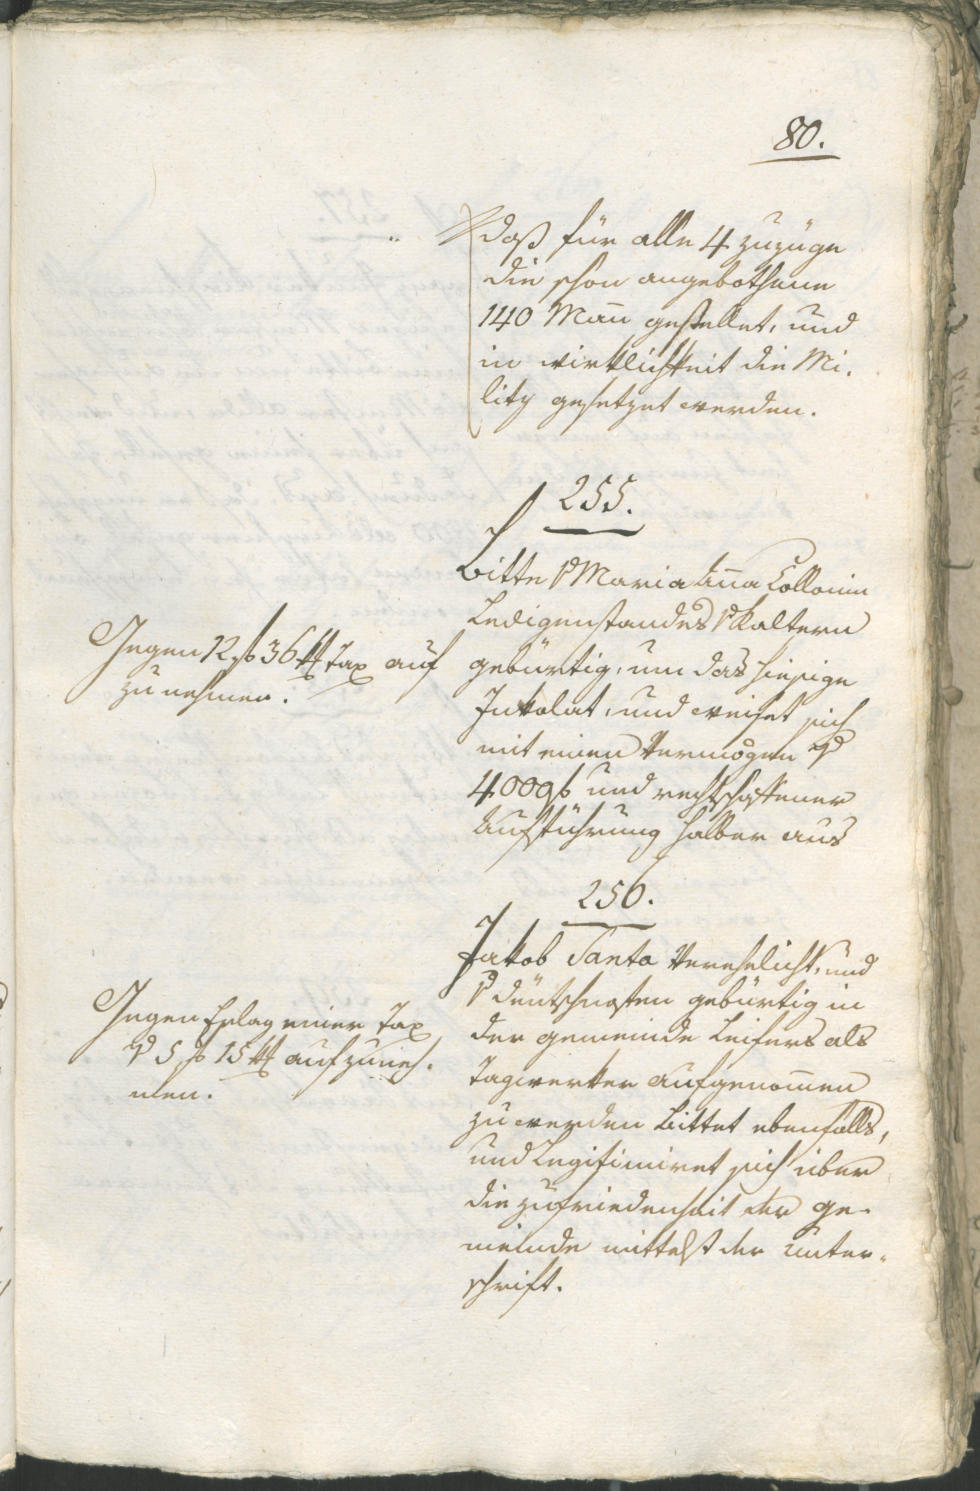 80.
daß für alle 4 zuzüge
die schon angebothene
140 Mañ gestellet, und
in wirklichkeit die Mi-
litz gesetzet werden.
255.
Bitte v Maria Aña Collonin
Ledigenstandes v Kaltern
gebürtig, um das hiesige
Inkolat, und weiset sich
mit einen Vermögen v
4000 f und rechtschaffener
Aufführung halber aus
Gegen 12 f 36 xr Tax auf
zunehmen.
256.
Jakob Santa Verehelicht, und
v deutschnofen gebürtig in
der gemeinde Leifers als
Tagwerker aufgenom̄en
zu werden bittet ebenfalls,
und Legitimiret sich über
die zufriedenheit der ge-
meinde mittelst der unter-
schrift.
Gegen Erlag einer Tax
v 5 f 15 xr aufzuneh-
men.